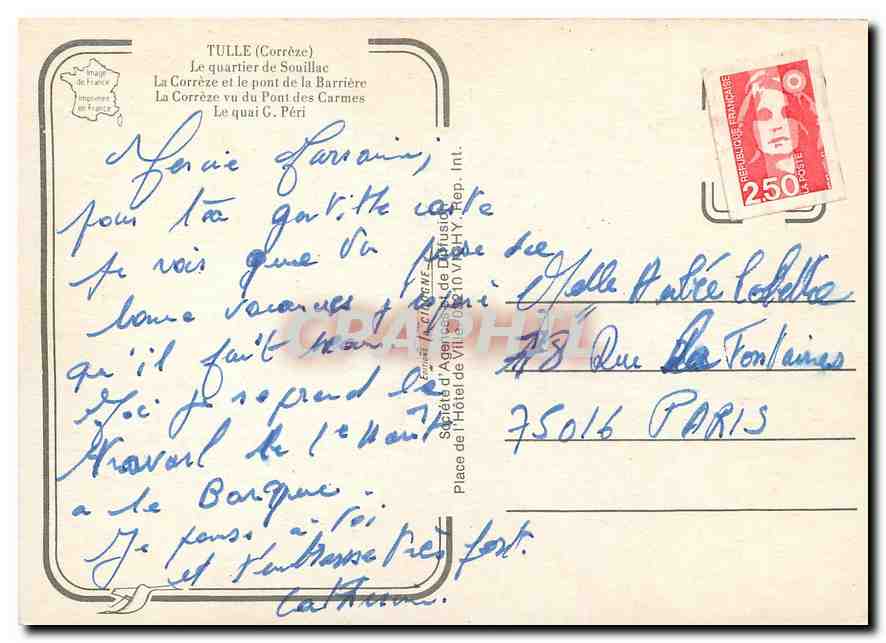 TULLE (Corrèze)
Le quartier de Souillac
La Corrèze et le pont de la Barrière
La Corrèze vu du Pont des Carmes
Le quai G. Péri
Image
de France
Imprimée
en France
RÉPUBLIQUE FRANÇAISE
2,50
LA POSTE
pour ta gentille carte
Je vois que tu passe de
bonne vacances
qu'il fait beau
Moi je reprend le
travail le 1e Août
a la Banque.
Je pense à toi
et t'embrasse très fort.
Editions la CIGOGNE
Société d'Agences et de Diffusion
Place de l'Hôtel de Ville 03210 VICHY. Rep. Int.
CPAPHIL
Melle
18 Rue La Fontaines
75016 PARIS